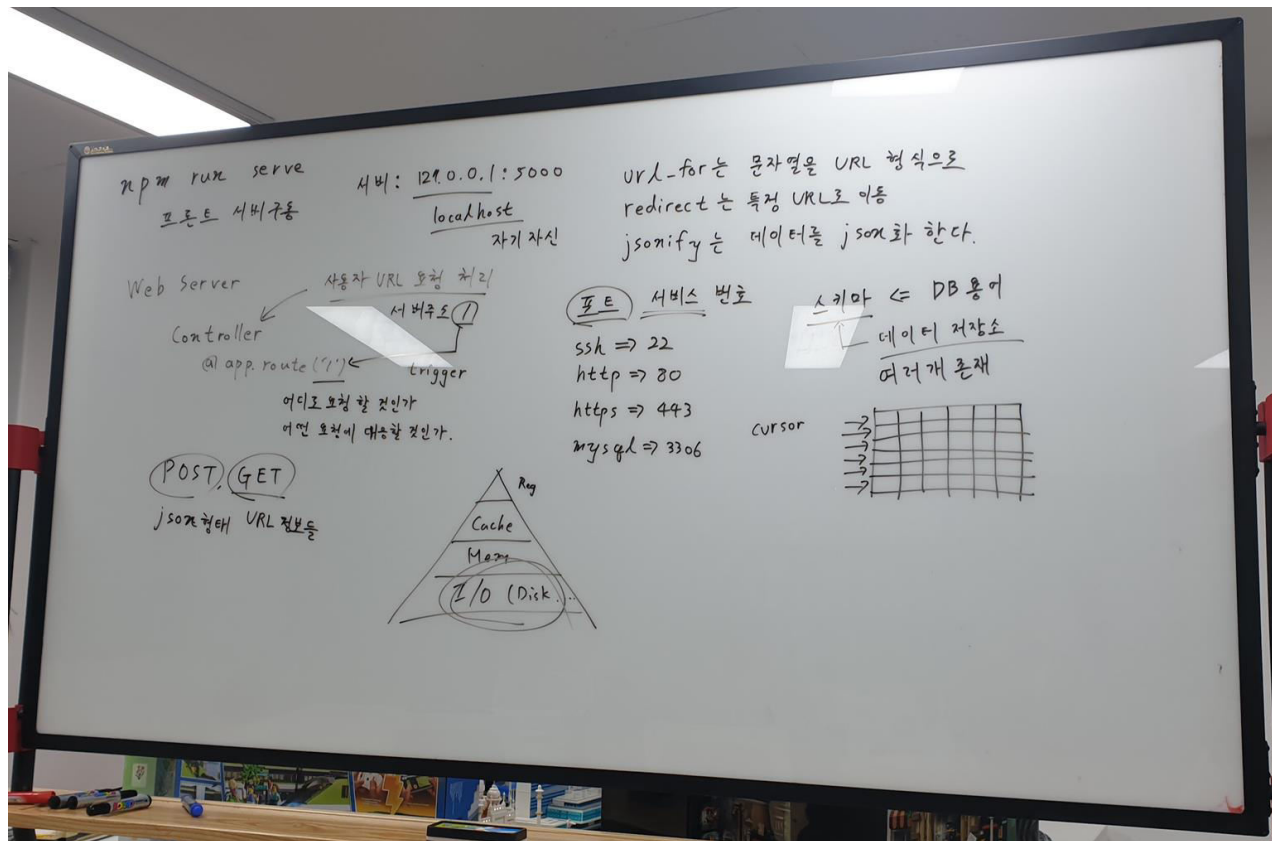 npm run serve
프론트 서버구동
서버: 127.0.0.1:5000
localhost
자기 자신
url_for는 문자열을 URL 형식으로
redirect는 특정 URL로 이동
jsonify는 데이터를 json화 한다.
Web Server
사용자 URL 요청 처리
서버주소 /
Controller
@ app.route('/')
trigger
어디로 요청 할 것인가
어떤 요청에 대응할 것인가.
POST, GET
json형태 URL 정보들
Reg
Cache
Mem
I/O (Disk...
포트 서비스 번호
ssh => 22
http => 80
https => 443
mysql => 3306
스키마 <= DB 용어
데이터 저장소
여러개 존재
cursor